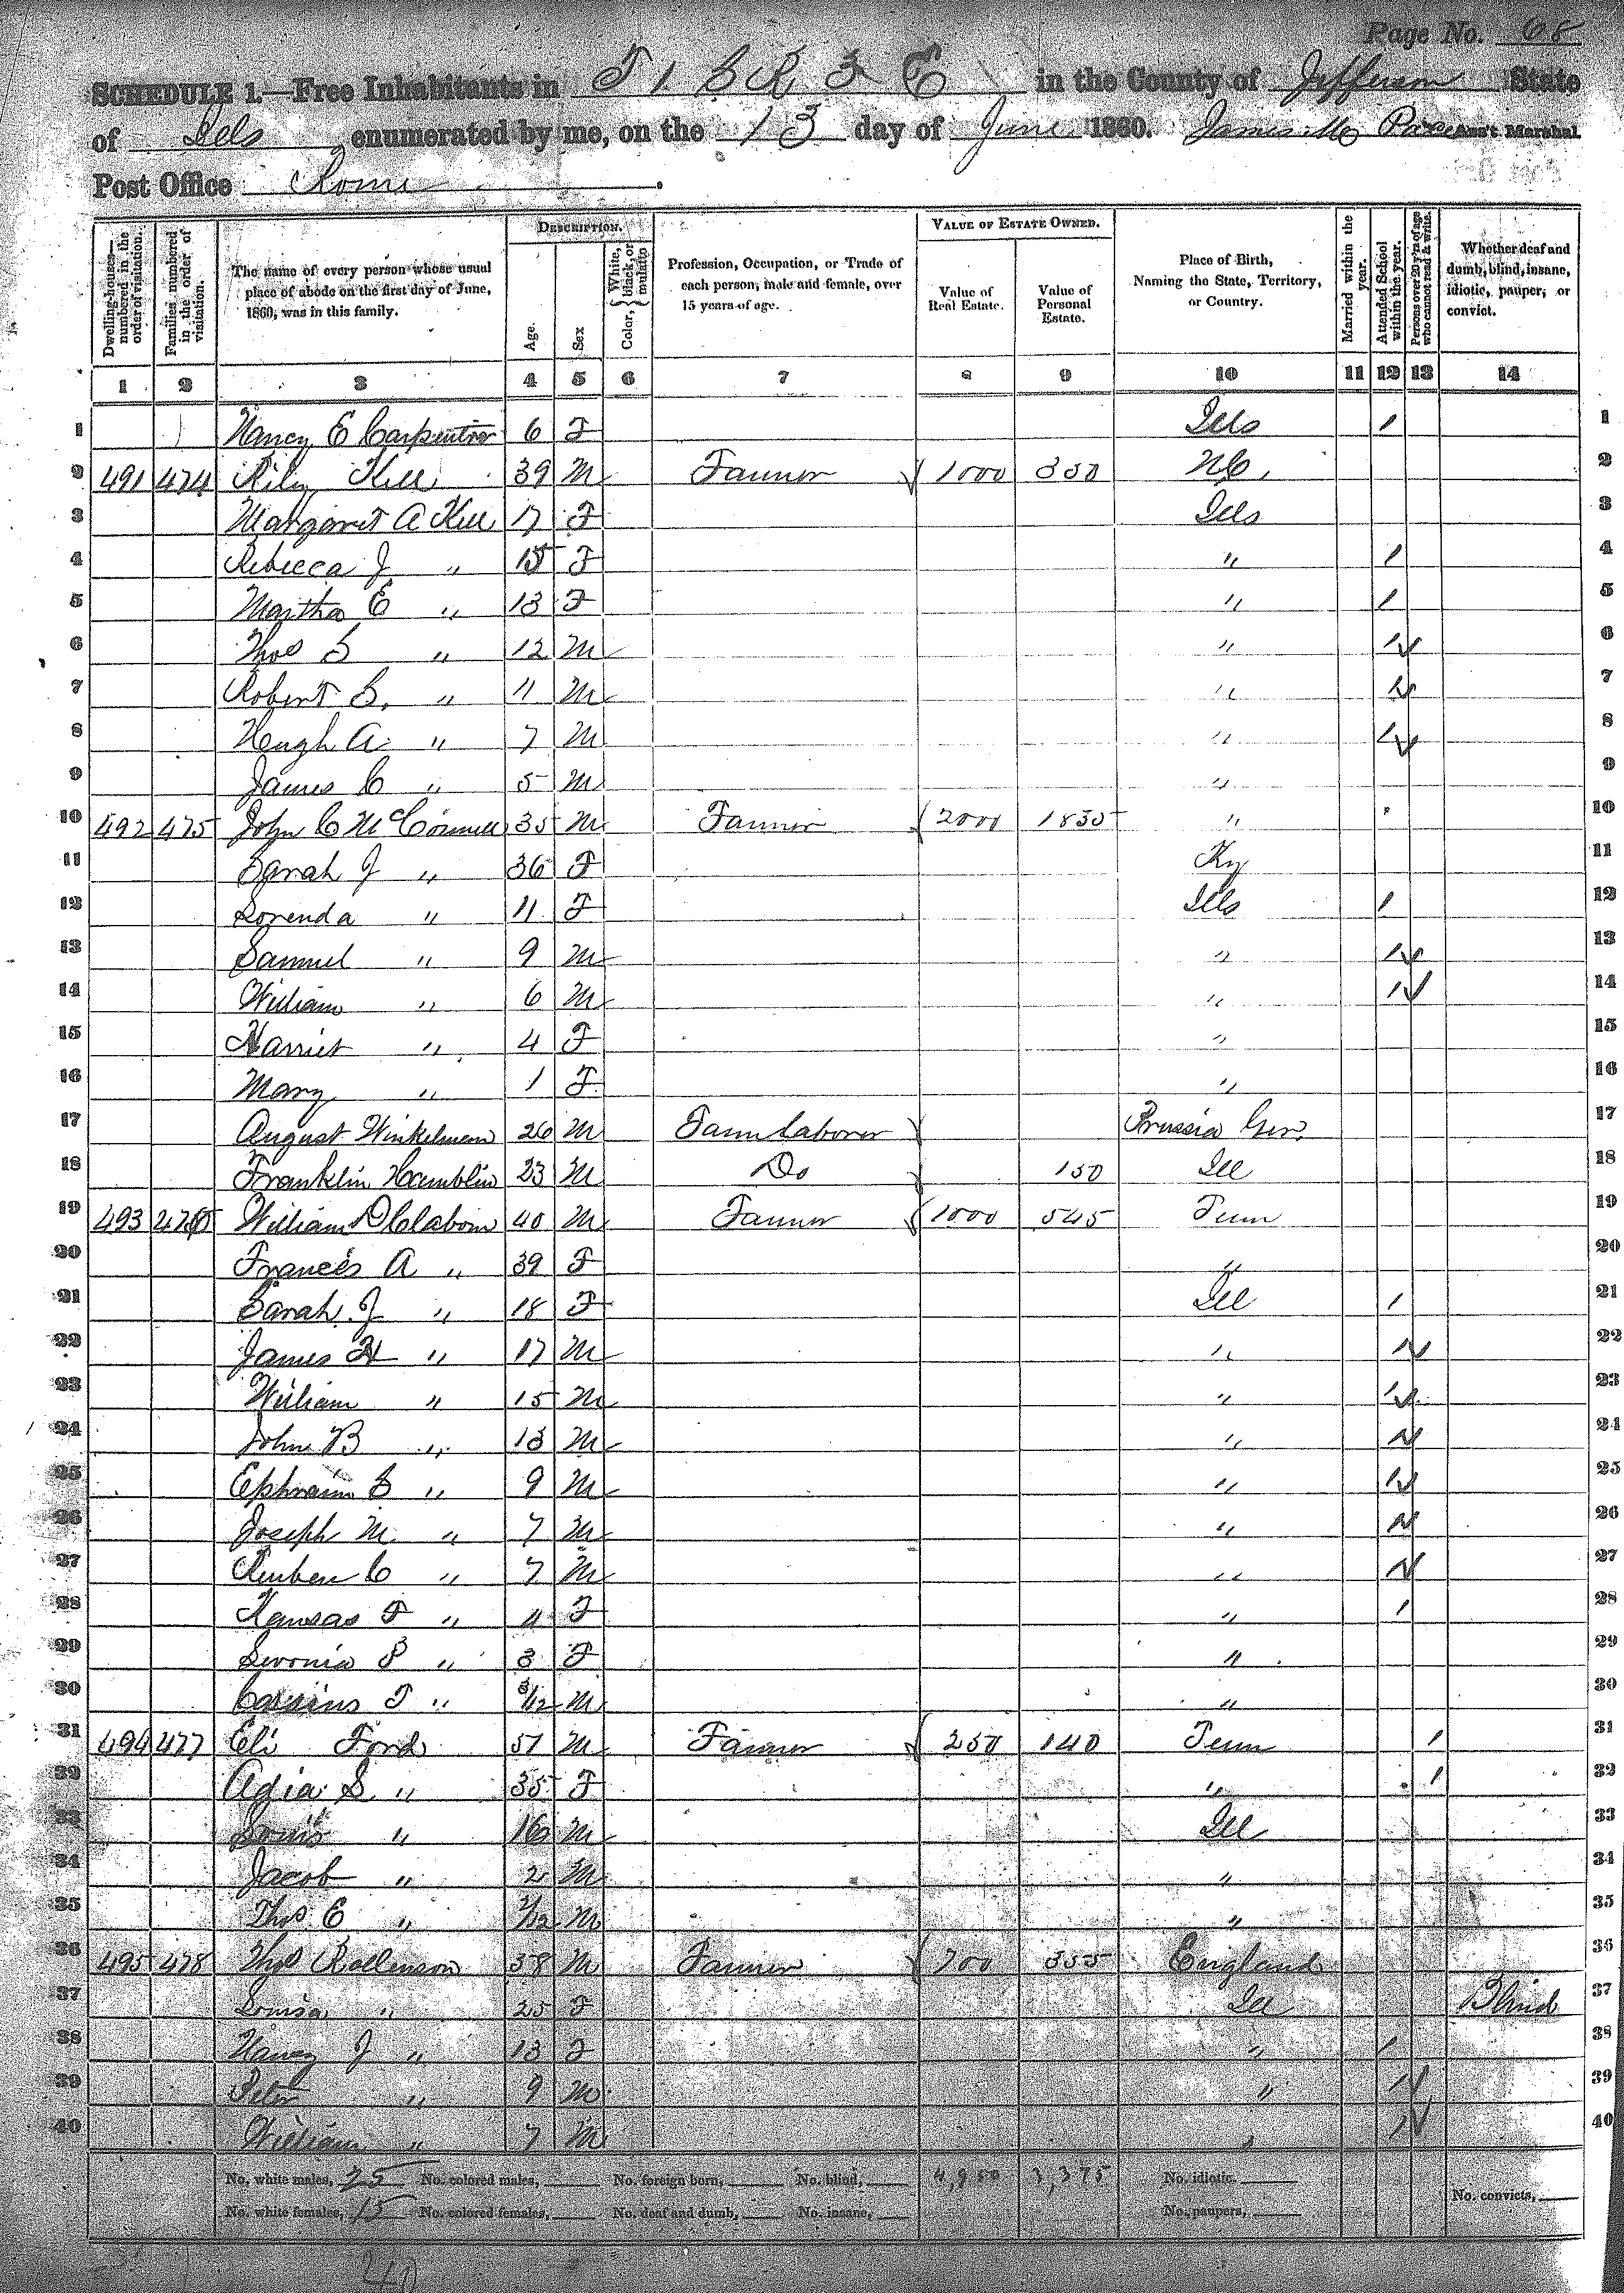 Page No. 68
SCHEDULE 1.—Free Inhabitants in T 1 S R 3 E in the County of Jefferson State
of Ills enumerated by me, on the 13 day of June 1860. James M Pace Ass't Marshal.
Post Office Rome
Dwelling-houses—numbered in the order of visitation.
Families numbered in the order of visitation.
The name of every person whose usual place of abode on the first day of June, 1860, was in this family.
DESCRIPTION.
Age.
Sex
Color, { White, black, or mulatto
Profession, Occupation, or Trade of each person, male and female, over 15 years of age.
VALUE OF ESTATE OWNED.
Value of Real Estate.
Value of Personal Estate.
Place of Birth, Naming the State, Territory, or Country.
Married within the year.
Attended School within the year.
Persons over 20 y'rs of age who cannot read & write.
Whether deaf and dumb, blind, insane, idiotic, pauper, or convict.
1 2 3 4 5 6 7 8 9 10 11 12 13 14
1 Nancy E Carpenter 6 F Ills / 1
2 491 474 Riley Kell 39 M Farmer 1000 350 NC, 2
3 Margaret A Kell 17 F Ills 3
4 Rebecca J " 15 F " / 4
5 Martha E " 13 F " / 5
6 Thos S " 12 M " / 6
7 Robert S. " 11 M " / 7
8 Hugh A " 7 M " / 8
9 James C " 5 M " 9
10 492 475 John C McConnell 35 M Farmer 2000 1835 " 10
11 Sarah J " 36 F Ky 11
12 Lorenda " 11 F Ills / 12
13 Samuel " 9 M " / 13
14 William " 6 M " / 14
15 Harriet " 4 F " 15
16 Mary " 1 F " 16
17 August Winkelman 26 M Farm laborer Prussia Ger. 17
18 Franklin Hamblin 23 M Do 150 Ill 18
19 493 William D Claborn 40 M Farmer 1000 545 Tenn 19
20 Francis A " 39 F " 20
21 Sarah J " 18 F Ill / 21
22 James H " 17 M " / 22
23 William " 15 M " / 23
24 John B " 13 M " / 24
25 Ephraim S " 9 M " / 25
26 Joseph M " 7 M " / 26
27 Reuben C " 7 M " / 27
28 Kansas F " 4 F " / 28
29 P " 3 F " 29
30 T " /12 M " 30
31 494 477 Eli Ford 51 M Farmer 250 140 Tenn / 31
32 S " 35 F " / 32
33 Louis " 16 M Ill 33
34 Jacob " 2 M " 34
35 Thos E " /12 M " 35
36 495 478 Thos Rollinson 38 M Farmer 700 355 England 36
37 Louisa " 25 F Ill Blind 37
38 Nancy J " 13 F " / 38
39 Peter " 9 M " / 39
40 William " 7 M " / 40
No. white males, 25 No. colored males, No. foreign born, No. blind, 4,950 3,375 No. idiotic,
No. white females, 15 No. colored females, No. deaf and dumb, No. insane, No. paupers, No. convicts,
40